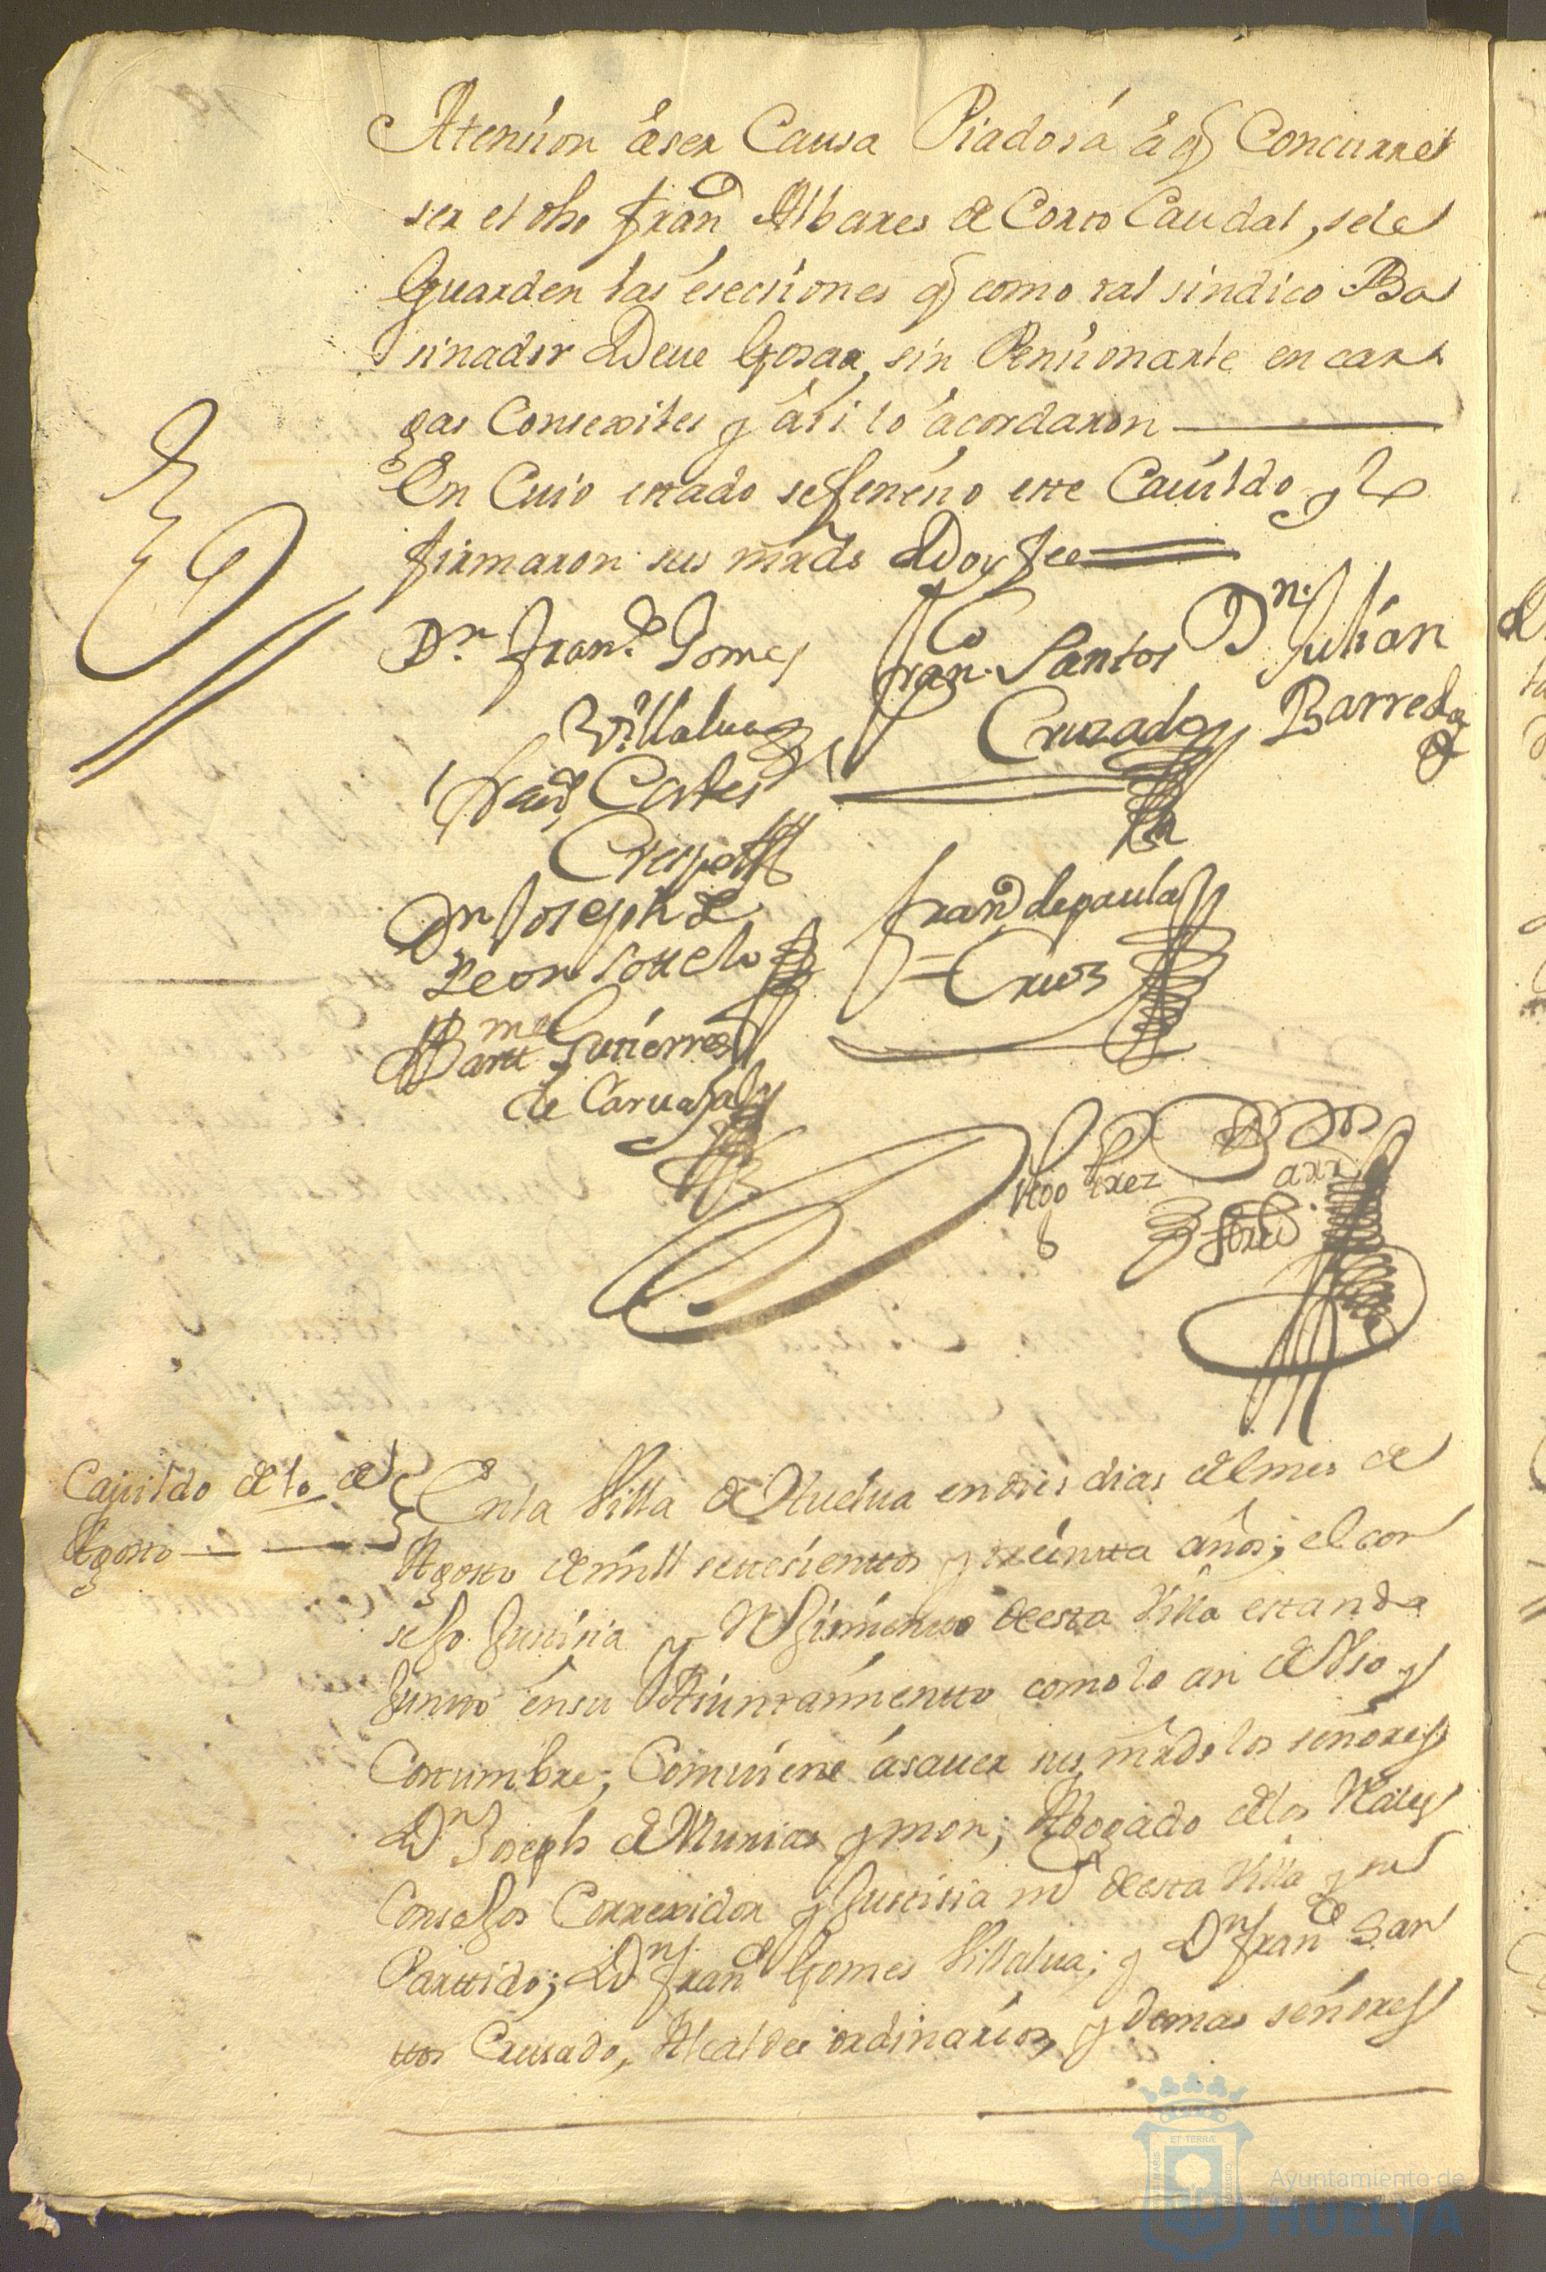 Atension a ser Causa Piadosa a q Concurre
ser el dho fran.co Albares de Corto Caudal, se le
Guarden las esecsiones q como tal sindico Ba
sinador Deve Gosar, sin Pensionarle en car
gas Consexiles y asi lo acordaron
En Cuio estado se feneno este Cavildo y lo
firmaron sus mrds Doy fee
Dn Franco Gomes Franco Santos Dn Julian
Villalua Cruzado Barreda
Franco Cortes
Crespo
Dn Joseph de franco de paula
Leon Sottelo Cruz
Bartme Gutierres
de Carvajal
Cavildo de 10 de
Agosto
En la Villa de Huelva en dies dias del mes de
Agosto de mill settesienttos y treintta años; el con
sejo Justisia y Rexímientto de esta Villa estando
Juntto en su Aiuntamientto como lo an de Uso y
Costumbre; Comviene a saver sus mrds los señores
Dn Joseph de Munias y mon; Abogado de los Reales
Consejos Correxidor y Justisia mr de esta Villa y su
Parttido; Dn franco Gomes Villalva; y Dn franco San
ttos Crusado, Alcaldes ordinarios, y demas señores
Ayuntamiento de
HUELVA